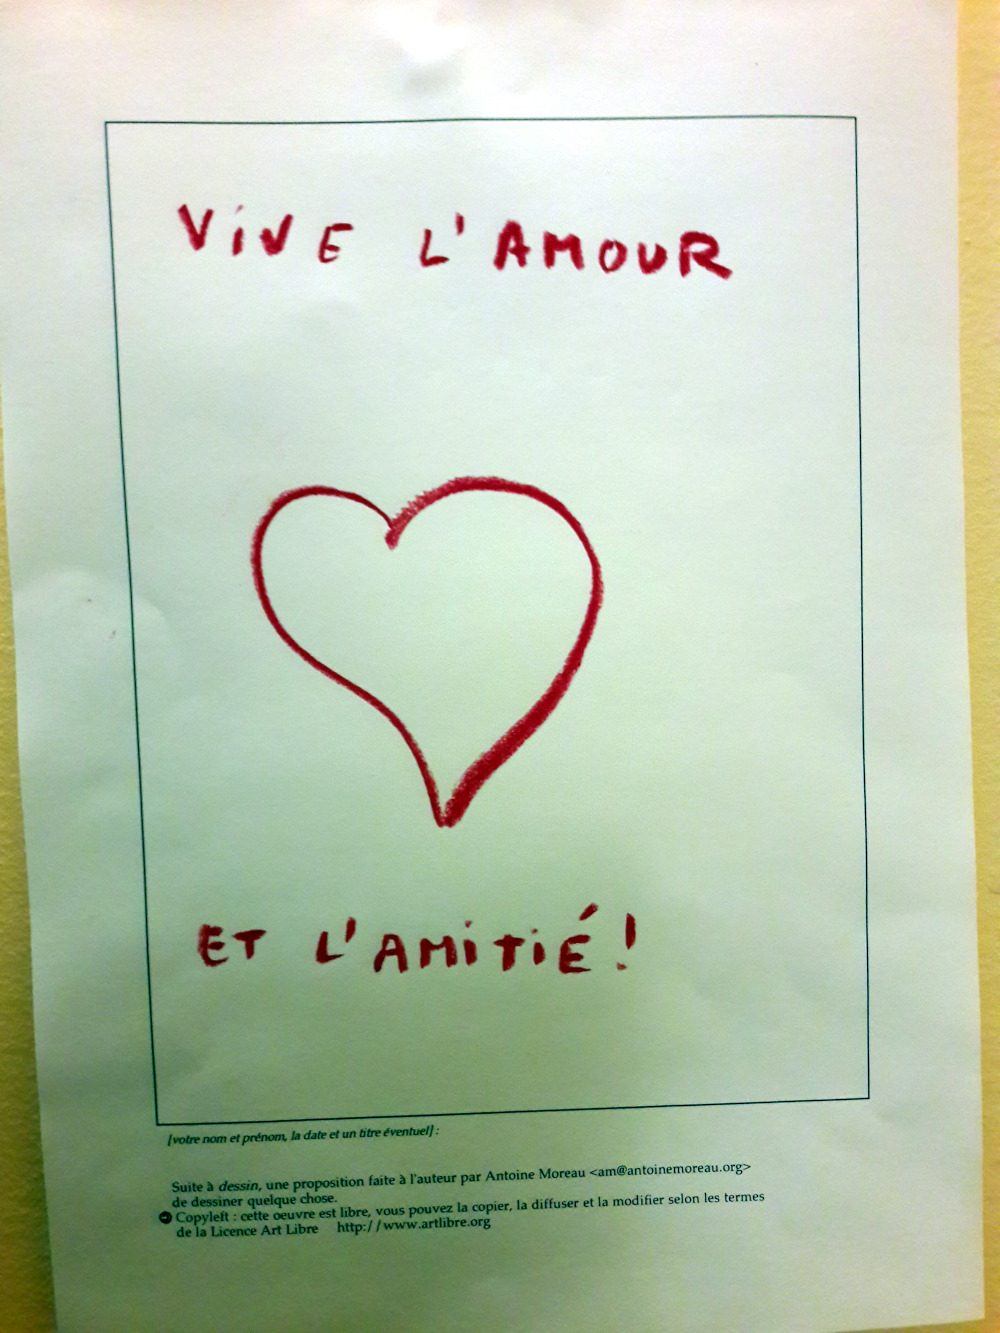 ViVE L'AMOUR
ET L'AMiTiÉ!
[votre nom et prénom, la date et un titre éventuel] :
Suite à dessin, une proposition faite à l'auteur par Antoine Moreau <am@antoinemoreau.org>
de dessiner quelque chose.
Copyleft : cette oeuvre est libre, vous pouvez la copier, la diffuser et la modifier selon les termes
de la Licence Art Libre http://www.artlibre.org